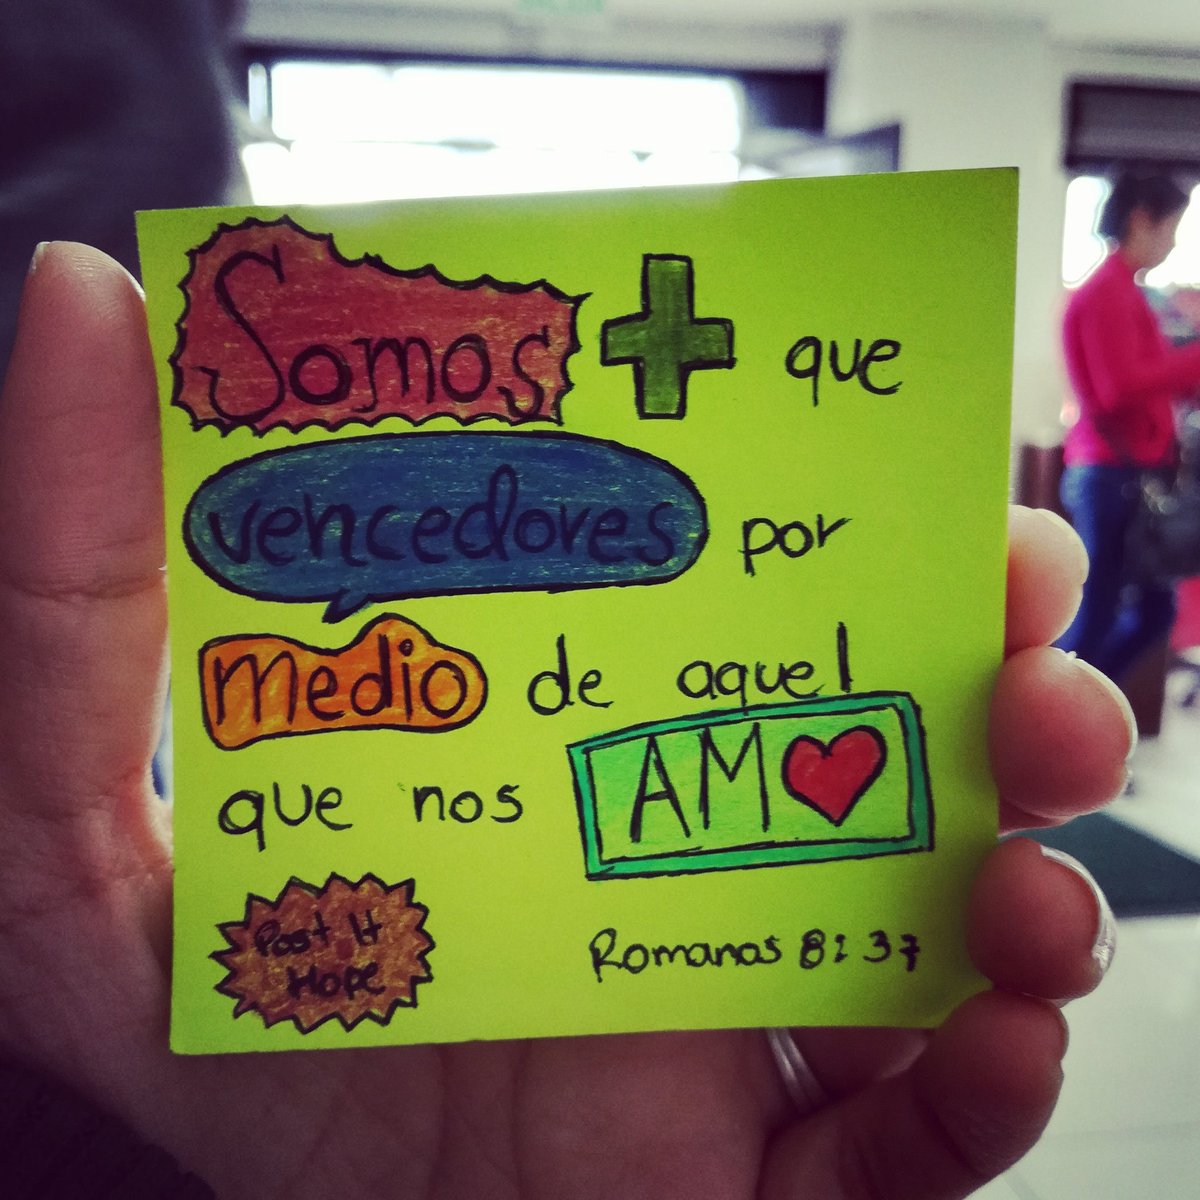 Somos + que
vencedores por
medio de aquel
que nos AM❤
Post It
Hope
Romanos 8:37